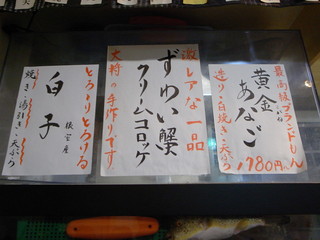 最高級ブランド
黄金
あなご
造り・白焼き・天ぷら
1780円
激レアな一品
ずわい蟹
クリームコロッケ
大将の手作りです
とろーりとろける
白子
焼き・湯引き・天ぷら